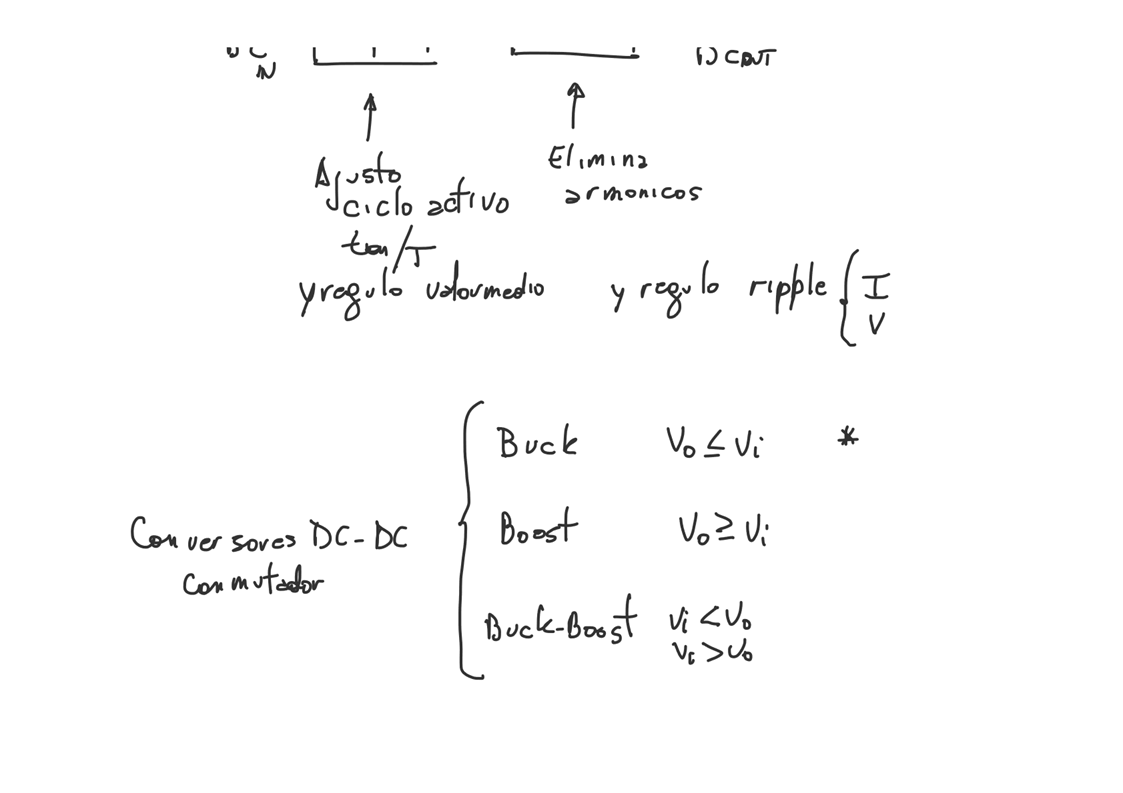 DC OUT
IN
Ajusto
ciclo activo
ton/T
y regulo valor medio
Elimina
armonicos
y regulo ripple { I
V
Conversores DC-DC
conmutador
Buck Vo ≤ Vi *
Boost Vo ≥ Vi
Buck-Boost Vi < Vo
Vi > Vo